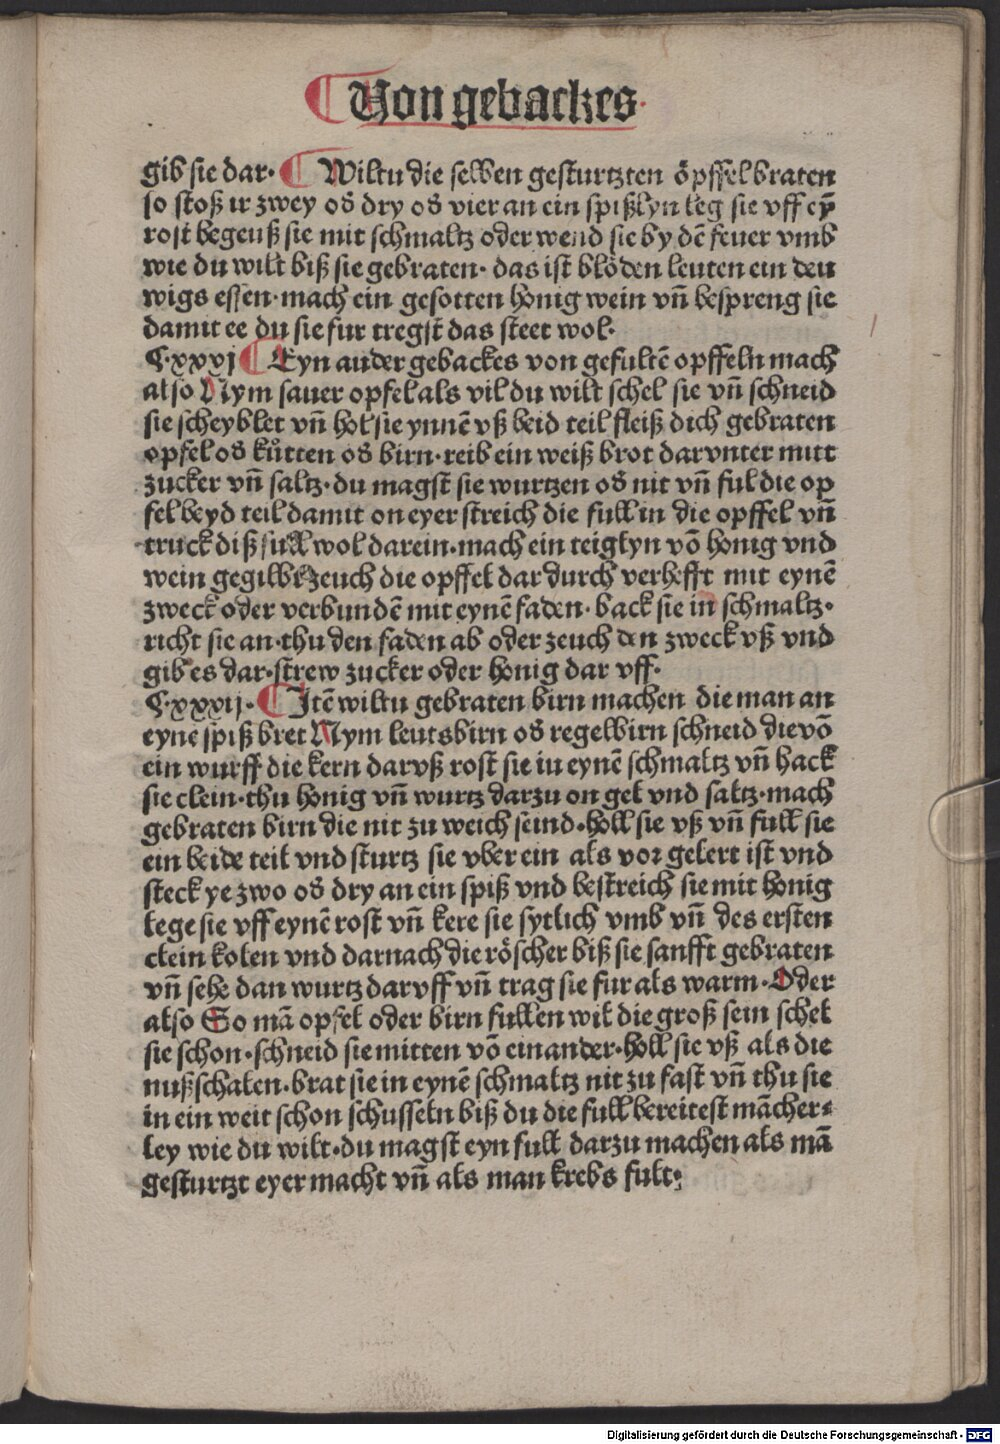 Von gebackes·
gib sie dar· Wiltu die selben gesturtzten öpffel braten
so stoß ir zwey od̛ dry od̛ vier an ein spißlyn leg sie vff eȳ
rost begeuß sie mit schmaltz oder wend sie by dē feuer vmb
wie du wilt biß sie gebraten· das ist blöden leuten ein deu
wigs essen·mach ein gesotten honig wein vn̄ bespreng sie
damit ee du sie fur tregst das steet wol·
C·xxxvj Eyn ander gebackes von gefultē opffeln mach
also Nym sauer opfel als vil du wilt schel sie vn̄ schneid
sie scheyblet vn̄ hol sie ynnē vß beid teil fleiß dich gebraten
opfel od̛ kůtten od̛ birn·reib ein weiß brot darvnter mitt
zucker vn̄ saltz·du magst sie wurtzen od̛ nit vn̄ ful die op
fel beyd teil damit on eyer streich die full in die opffel vn̄
truck diß full wol darein·mach ein teiglyn vō honig vnd
wein gegilbt zeuch die opffel dar durch verhefft mit eynē
zweck oder verbundē mit eynē faden· back sie in schmaltz·
richt sie an·thu den faden ab oder zeuch den zweck vß vnd
gib es dar·strew zucker oder honig dar vff·
C·xxxvij· Jtē wiltu gebraten birn machen die man an
eyne spiß bret Nym leutsbirn od̛ regelbirn schneid die vō
ein wurff die kern darvß rost sie in eynē schmaltz vn̄ hack
sie clein·thu honig vn̄ wurtz darzu on gel vnd saltz·mach
gebraten birn die nit zu weich seind·holl sie vß vn̄ full sie
ein beide teil vnd sturtz sie vber ein als vor gelert ist vnd
steck ye zwo od̛ dry an ein spiß vnd bestreich sie mit honig
lege sie vff eynē rost vn̄ kere sie sytlich vmb vn̄ des ersten
clein kolen vnd darnach die röscher biß sie sanfft gebraten
vn̄ sehe dan wurtz darvff vn̄ trag sie fur als warm·Oder
also So mā opfel oder birn fullen wil die groß sein schel
sie schon·schneid sie mitten vō einander·holl sie vß als die
nußschalen·brat sie in eynē schmaltz nit zu fast vn̄ thu sie
in ein weit schon schusseln biß du die full bereitest mācher⸗
ley wie du wilt·du magst eyn full darzu machen als mā
gesturtzt eyer macht vn̄ als man krebs fult·
Digitalisierung gefördert durch die Deutsche Forschungsgemeinschaft · DFG